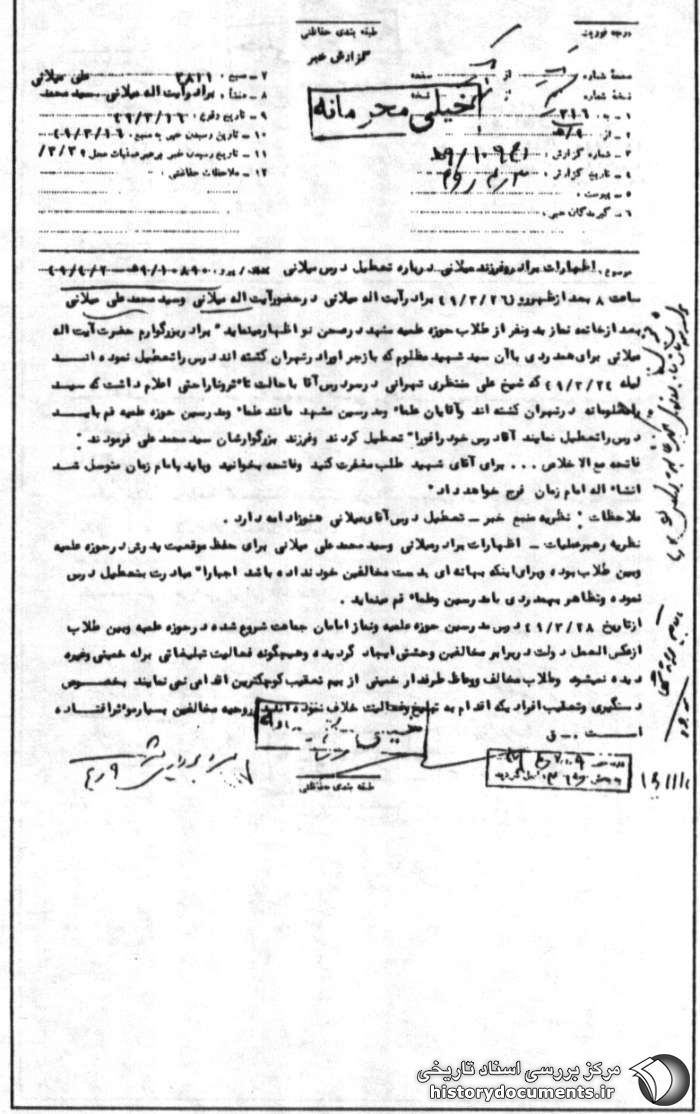 درجه فوریت
طبقه بندی حفاظتی
گزارش خبر
خیلی محرمانه
صفحه شماره از صفحه
نسخه شماره از نسخه
۱ - به : ۳۱۶
۲ - از :
۳ - شماره گزارش :
۴ - تاریخ گزارش :
۵ - پیوست :
۶ - گیرندگان خبر :
۷ - منبع : ۲۸۱۱ علی میلانی
۸ - منشأ : برادر آیت اله میلانی ـ سید محمد
۹ - تاریخ وقوع : ۴۹/۳/۱۶
۱۰ - تاریخ رسیدن خبر به منبع : ۴۹/۳/۱۶
۱۱ - تاریخ رسیدن خبر برهبر عملیات محل
۱۲ - ملاحظات حفاظتی :
موضوع : اظهارات برادر و فرزند میلانی درباره تعطیل درس میلانی
ساعت ۸ بعد از ظهر روز ۴۹/۳/۲۶ برادر آیت اله میلانی در حضور آیت اله میلانی وسید محمد علی میلانی
بعد از خاتمه نماز بدونفر از طلاب حوزه علمیه مشهد در صحن نو اظهار مینماید " برادر بزرگوارم حضرت آیت اله
میلانی برای همدردی با آن سید شهید مظلوم که با زجر او را در تهران کشته اند درس را تعطیل نموده انـــد
لیله ۴۹/۳/۲۴ که شیخ علی منتظری تهرانی در سر درس آقا با حالت تأثر و ناراحتی اعلام داشت که سیـد
را مظلومانه در تهران کشته اند و آقایان علماء و مدرسین مشهد مانند علماء و مدرسین حوزه علمیه قم بایـــد
درس را تعطیل نمایند آقا درس خود را فوراً تعطیل کردند وفرزند بزرگوارشان سید محمد علی فرمودند :
فاتحه مع الاخلاص ... برای آقای شهید طلب مغفرت کنید وفاتحه بخوانید وباید بامام زمان متوسل شـد
انشاء اله امام زمان فرج خواهد داد "
ملاحظات : نظریه منبع خبر ـ تعطیل درس آقای میلانی هنوز ادامه دارد .
نظریه رهبر عملیات ـ اظهارات برادر میلانی وسید محمد علی میلانی برای حفظ موقعیت پدرش در حوزه علمیه
وبین طلاب بوده وبرای اینکه بهانه ای بدست مخالفین خود نداده باشد اجباراً مبادرت بتعطیل درس
نموده وتظاهر بهمدردی با مدرسین وعلماء قم مینماید .
از تاریخ ۴۹/۳/۲۸ درس مدرسین حوزه علمیه ونماز امامان جماعت شروع شده در حوزه علمیه وبین طلاب
از عکس العمل دولت در برابر مخالفین وحشتی ایجاد گردیده وهیچگونه فعالیت تبلیغاتی برله خمینی وغیره
دیده نمیشود وطلاب مخالف ووعاظ طرفدار خمینی از بیم تعقیب کوچکترین اقدامی نمی نمایند بخصوص
دستگیری وتعقیب افرادیکه اقدام به توزیع وفعالیت خلاف نموده اند در روحیه مخالفین بسیار موثر افتـــاده
اســـت ـ ق
طبقه بندی حفاظتی
مرکز بررسی اسناد تاریخی
historydocuments.ir